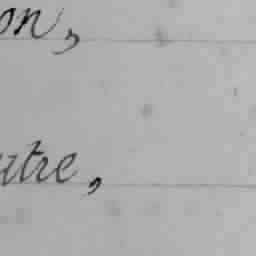 on,
utre,